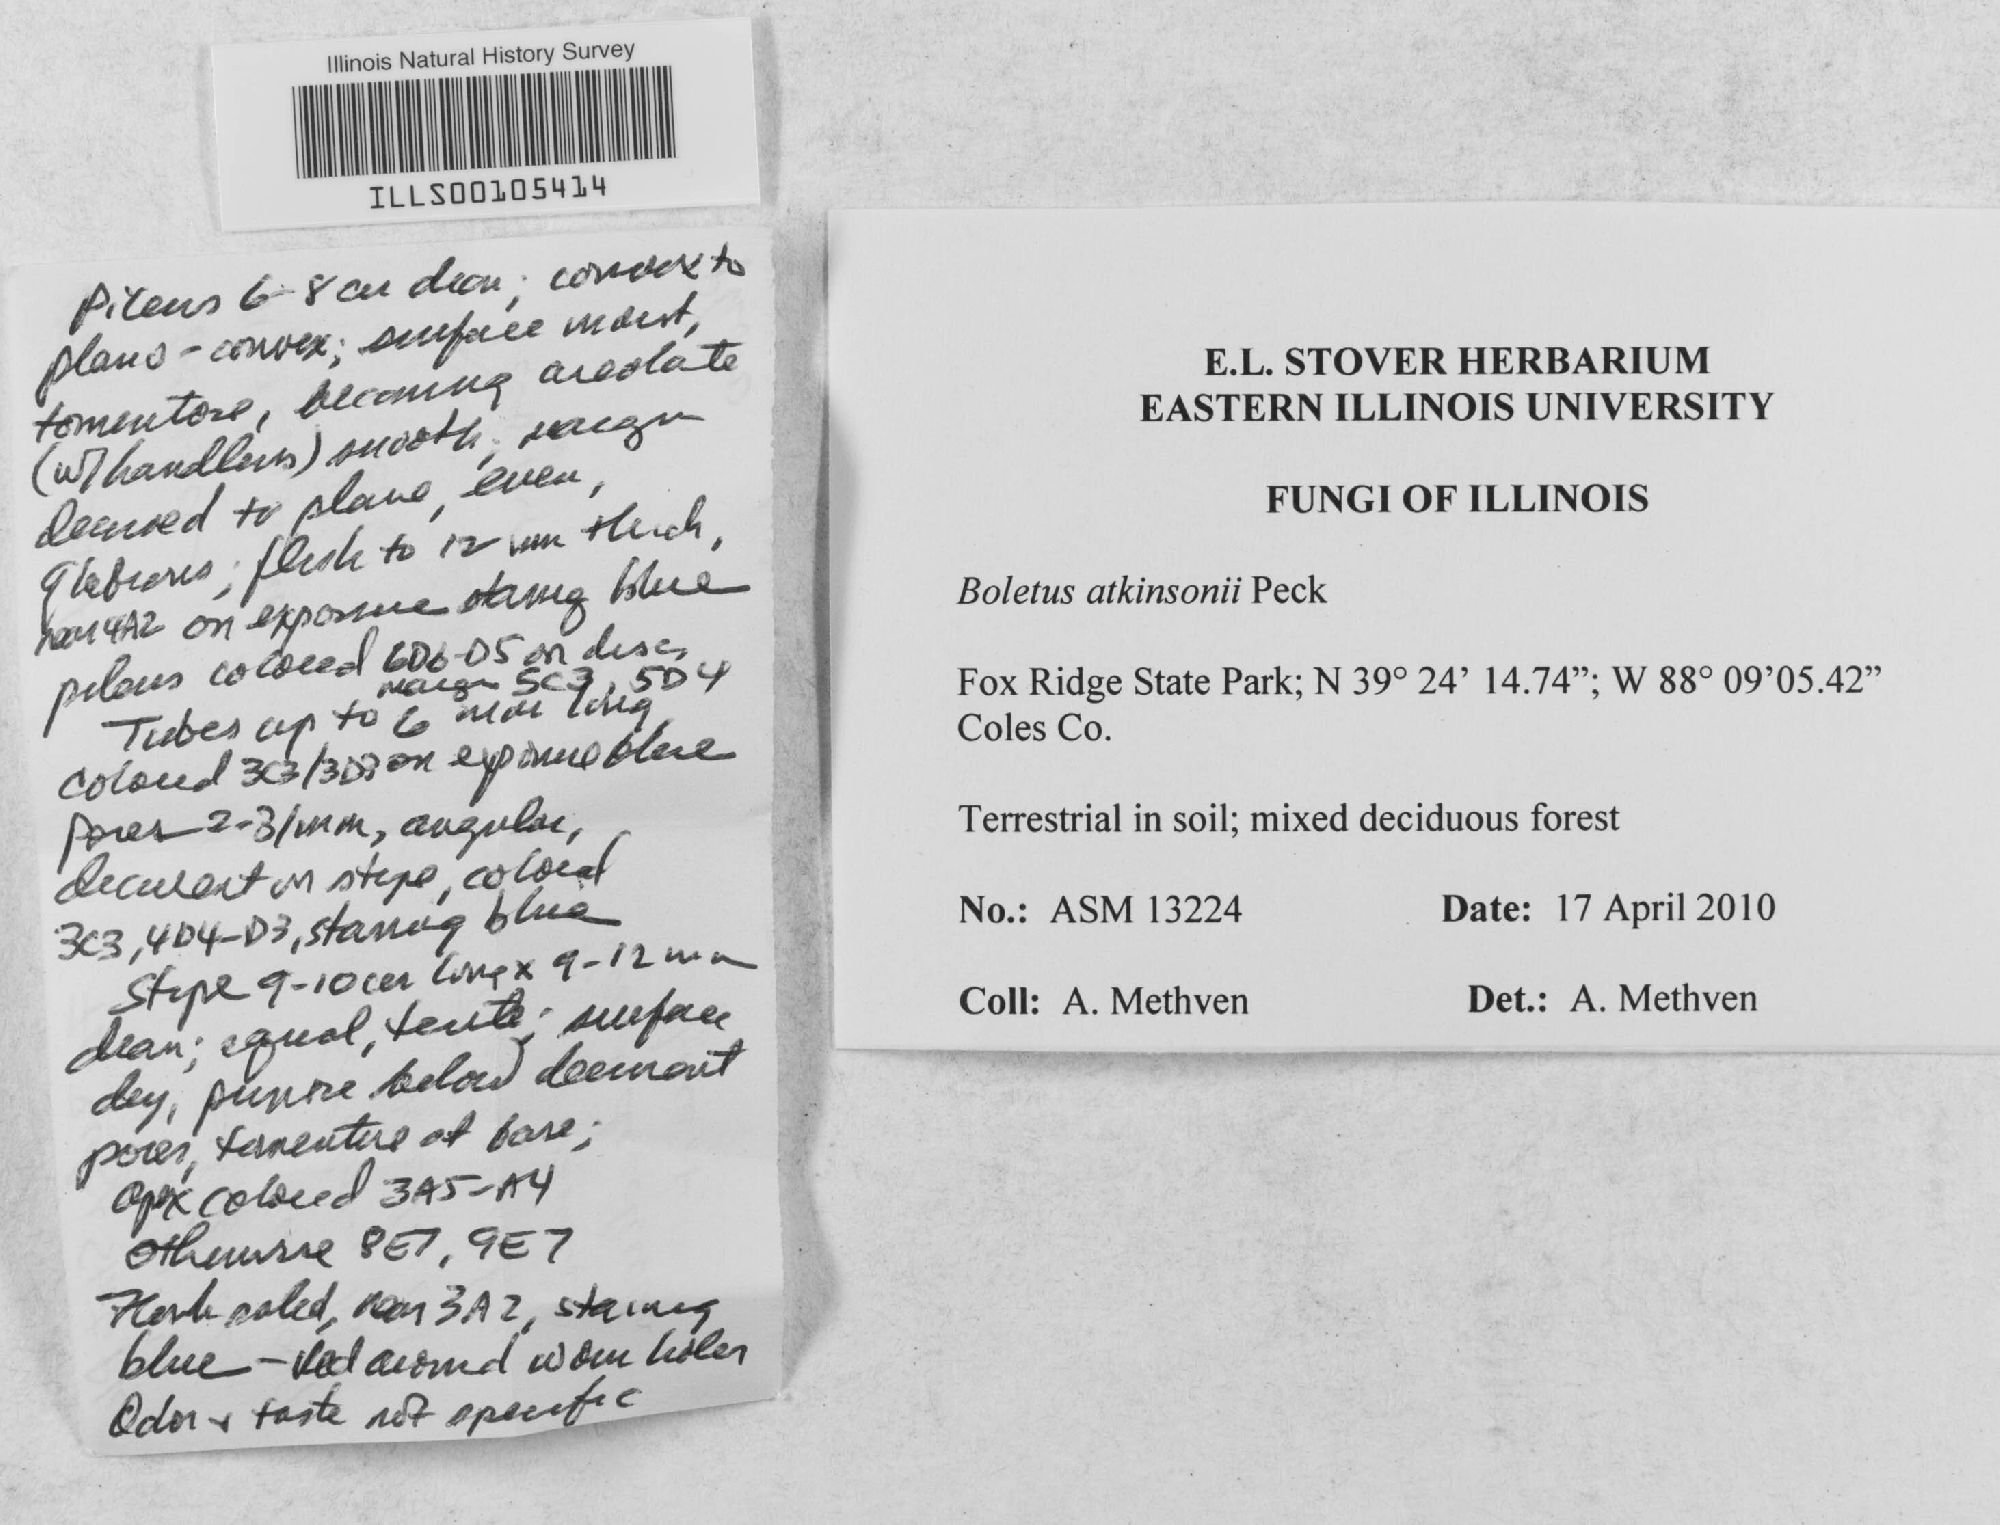 Illinois Natural History Survey
ILLS00105414
Pileus 6-8 cm diam; convex to
plano-convex; surface moist,
tomentose, becoming areolate
(w/handlens) smooth; margin
decurved to plane, even,
glabrous; flesh to 12 mm thick,
near 4A2 on exposure staing blue
pileus colored 6D6-D5 on disc,
margin 5C3, 5D4
Tubes up to 6 mm long
colored 3C3/3D3 on exposure blue
pores 2-3/mm, angular,
decurrent on stipe, colored
3C3, 4D4-D3, staining blue
Stipe 9-10 cm long x 9-12 mm
diam; equal, terete; surface
dry, below decurrent
pores, tomentose at base;
apex colored 3A5-A4
otherwise 8E7, 9E7
Flesh solid, near 3A2, staining
blue - red around worm holes
Odor + taste not specific
E.L. STOVER HERBARIUM
EASTERN ILLINOIS UNIVERSITY
FUNGI OF ILLINOIS
Boletus atkinsonii Peck
Fox Ridge State Park; N 39° 24’ 14.74”; W 88° 09’05.42”
Coles Co.
Terrestrial in soil; mixed deciduous forest
No.: ASM 13224 Date: 17 April 2010
Coll: A. Methven Det.: A. Methven